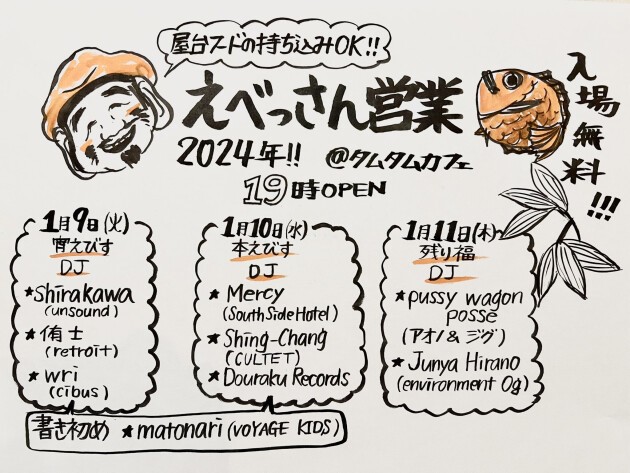 屋台フードの持ち込みOK!!
えべっさん営業
2024年!! @タムタムカフェ
19時OPEN
入場無料!!!
1月9日(火)
宵えびす
DJ
★Shirakawa
(unsound)
★侑士
(retroit)
★wri
(cibus)
1月10日(水)
本えびす
DJ
★Mercy
(South Side Hotel)
★Shing-Chang
(CULTET)
★Douraku Records
1月11日(木)
残り福
DJ
★pussy wagon
posse
(アオノ&ジグ)
★Junya Hirano
(environment 0g)
書き初め ★matonari (VOYAGE KIDS)